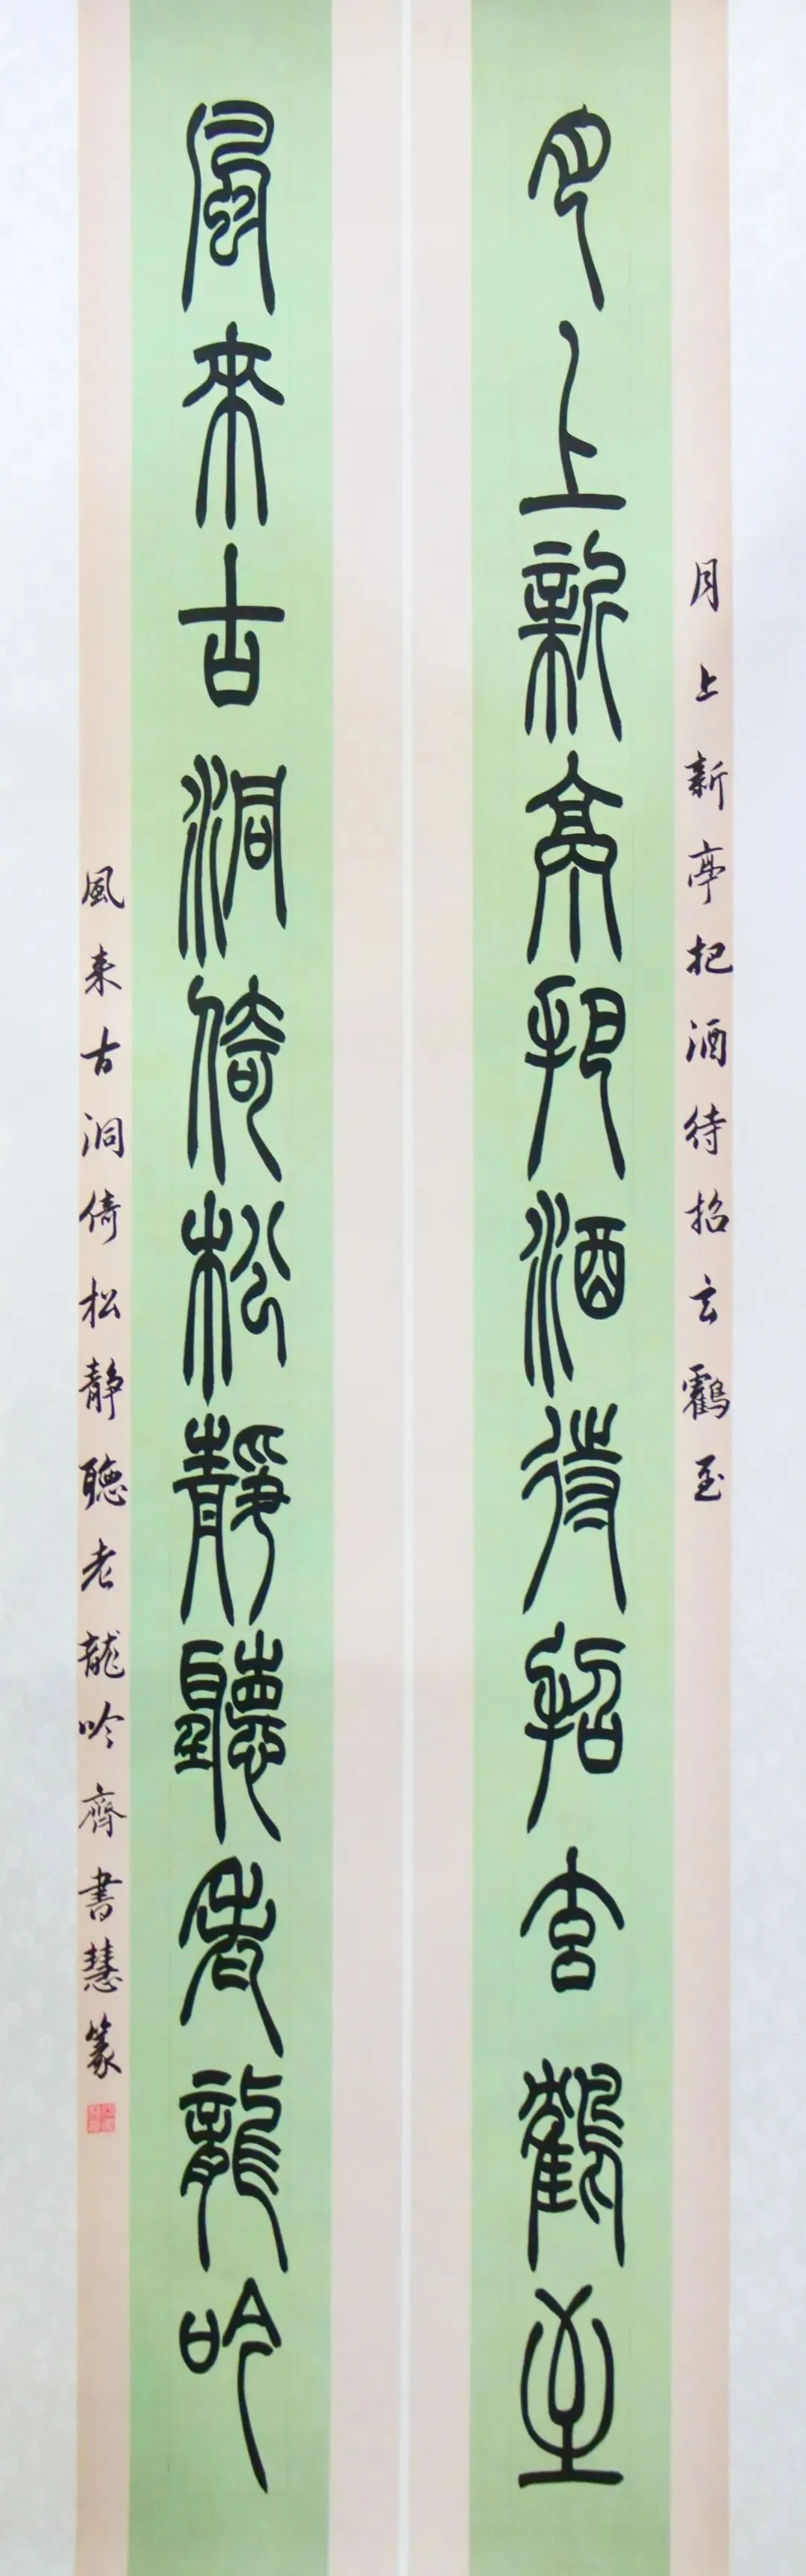 月上新亭把酒待招玄鶴至
月上新亭把酒待招玄鸖至
風来古洞倚松静聽老龍吟
風来古洞倚松静聽老龍吟齊書慧篆